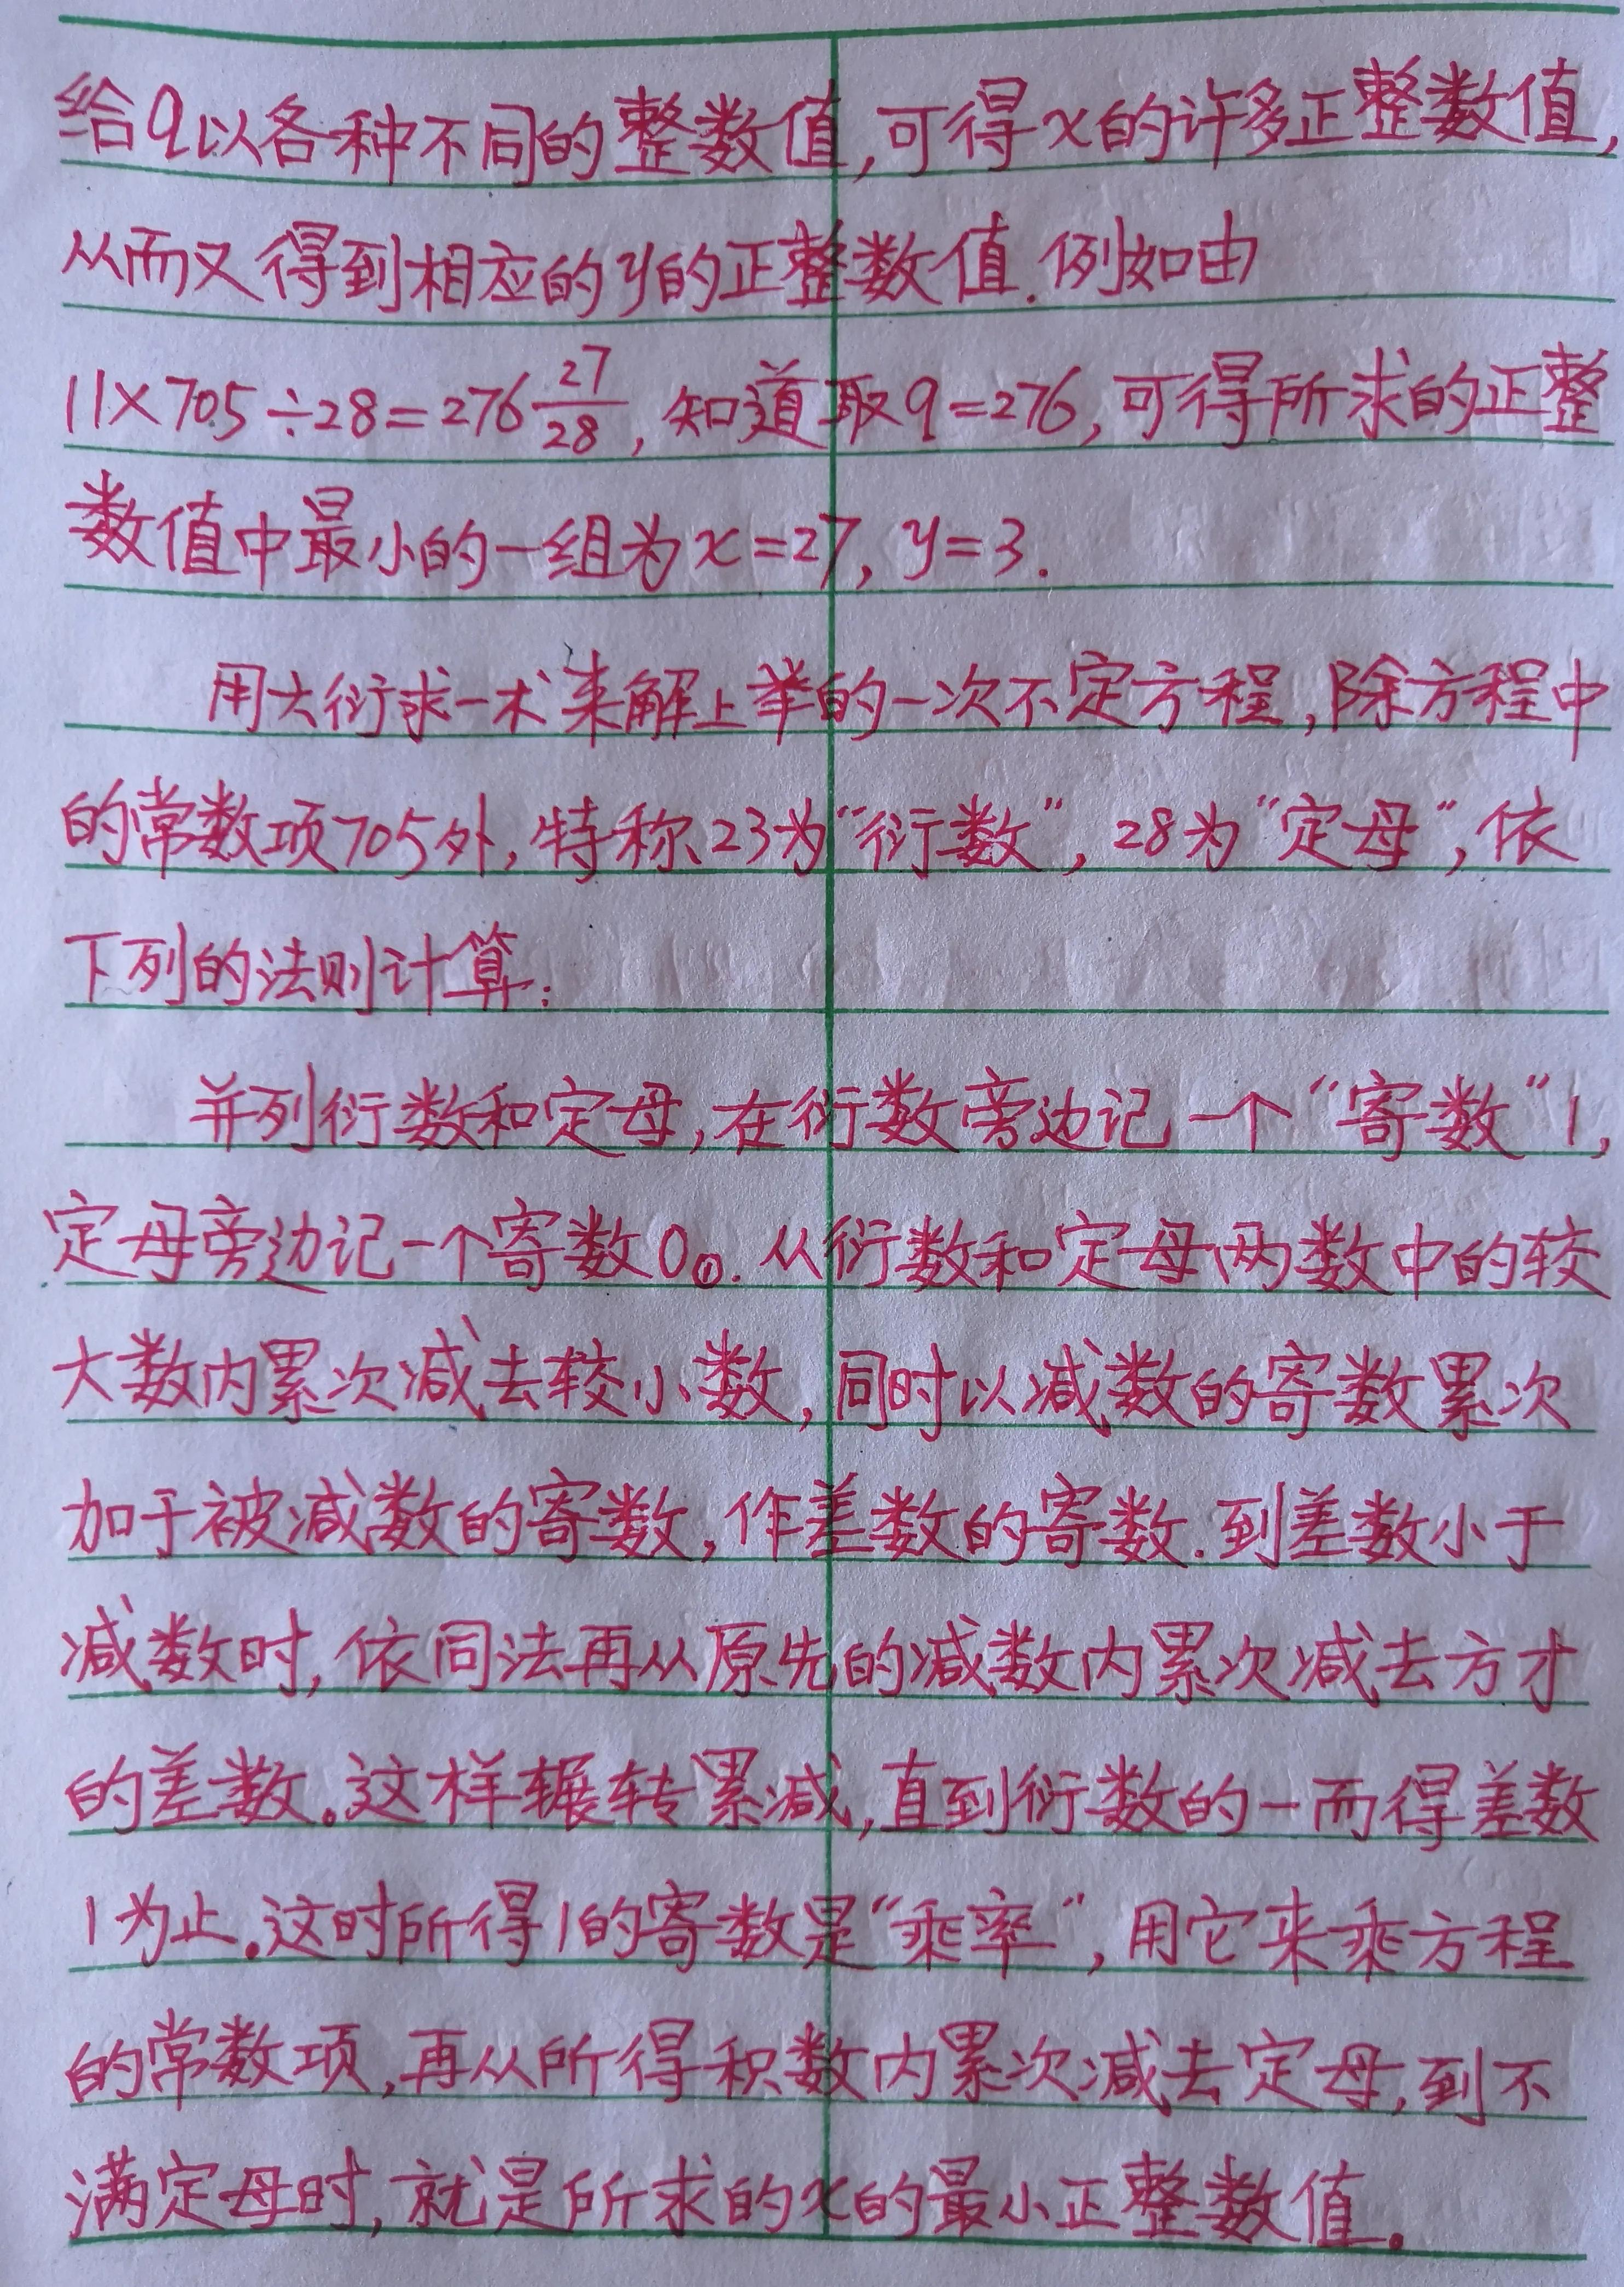 给q以各种不同的整数值,可得x的许多正整数值,
从而又得到相应的y的正整数值.例如由
11×705÷28=276 27/28, 知道取q=276,可得所求的正整
数值中最小的一组为x=27, y=3.
用大衍求一术来解上举的一次不定方程,除方程中
的常数项705外,特称23为“衍数”, 28为“定母”,依
下列的法则计算:
并列衍数和定母,在衍数旁边记一个“寄数”1,
定母旁边记一个寄数0①.从衍数和定母两数中的较
大数内累次减去较小数,同时以减数的寄数累次
加于被减数的寄数,作差数的寄数.到差数小于
减数时,依同法再从原先的减数内累次减去方才
的差数。这样辗转累减,直到衍数的一而得差数
1为止。这时所得1的寄数是“乘率”,用它来乘方程
的常数项,再从所得积数内累次减去定母,到不
满定母时,就是所求的x的最小正整数值。